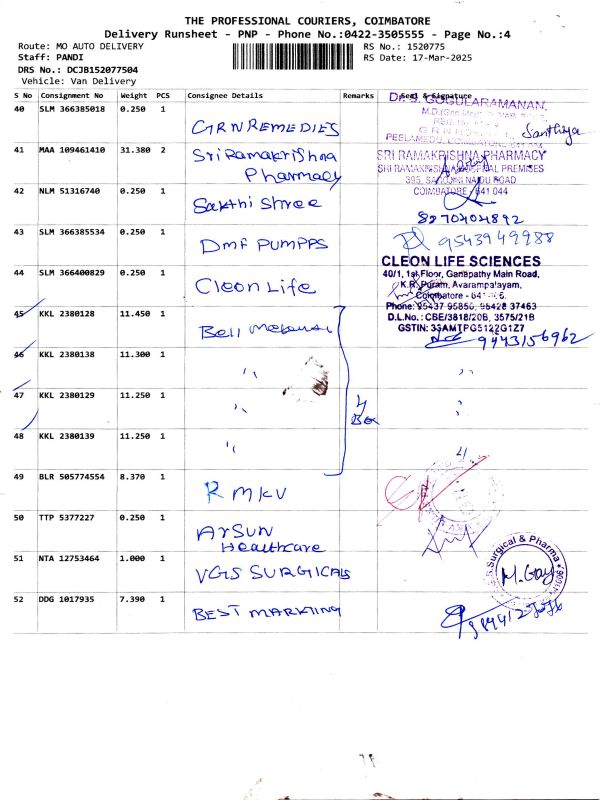 THE PROFESSIONAL COURIERS, COIMBATORE
Delivery Runsheet - PNP - Phone No.:0422-3505555 - Page No.:4
Route: MO AUTO DELIVERY
RS No.: 1520775
Staff: PANDI
RS Date: 17-Mar-2025
DRS No.: DCJB152077504
Vehicle: Van Delivery
S No Consignment No Weight PCS Consignee Details Remarks Seal & Signature
40 SLM 366385018 0.250 1 GRN REMEDIES
Dr. S. GOGULARAMANAN,
Santhiya
41 MAA 109461410 31.380 2 Sri Ramakrishna Pharmacy
SRI RAMAKRISHNA PHARMACY
SRI RAMAKRISHNA HOSPITAL PREMISES
395, SAROJINI NAIDU ROAD
COIMBATORE - 641 044
42 NLM 51316740 0.250 1 Sakthi Shree
43 SLM 366385534 0.250 1 DMF PUMPPS
9543949988
44 SLM 366400829 0.250 1 Cleon Life
CLEON LIFE SCIENCES
40/1, 1st Floor, Ganapathy Main Road,
K.R. Puram, Avarampalayam,
Coimbatore - 641 006.
Phone: 95437 95850, 95428 37463
D.L.No.: CBE/3818/20B, 3575/21B
GSTIN: 33AMTPG5122G1Z7
45 KKL 2380128 11.450 1 Bell
9443156962
46 KKL 2380138 11.300 1 "
47 KKL 2380129 11.250 1 "
4 Box
48 KKL 2380139 11.250 1 "
49 BLR 505774554 8.370 1 RMKV
50 TTP 5377227 0.250 1 Arsun Healthcare
51 NTA 12753464 1.000 1 VGS SURGICALS
Surgical & Pharma
M. Gay
52 DDG 1017935 7.390 1 BEST MARKTING